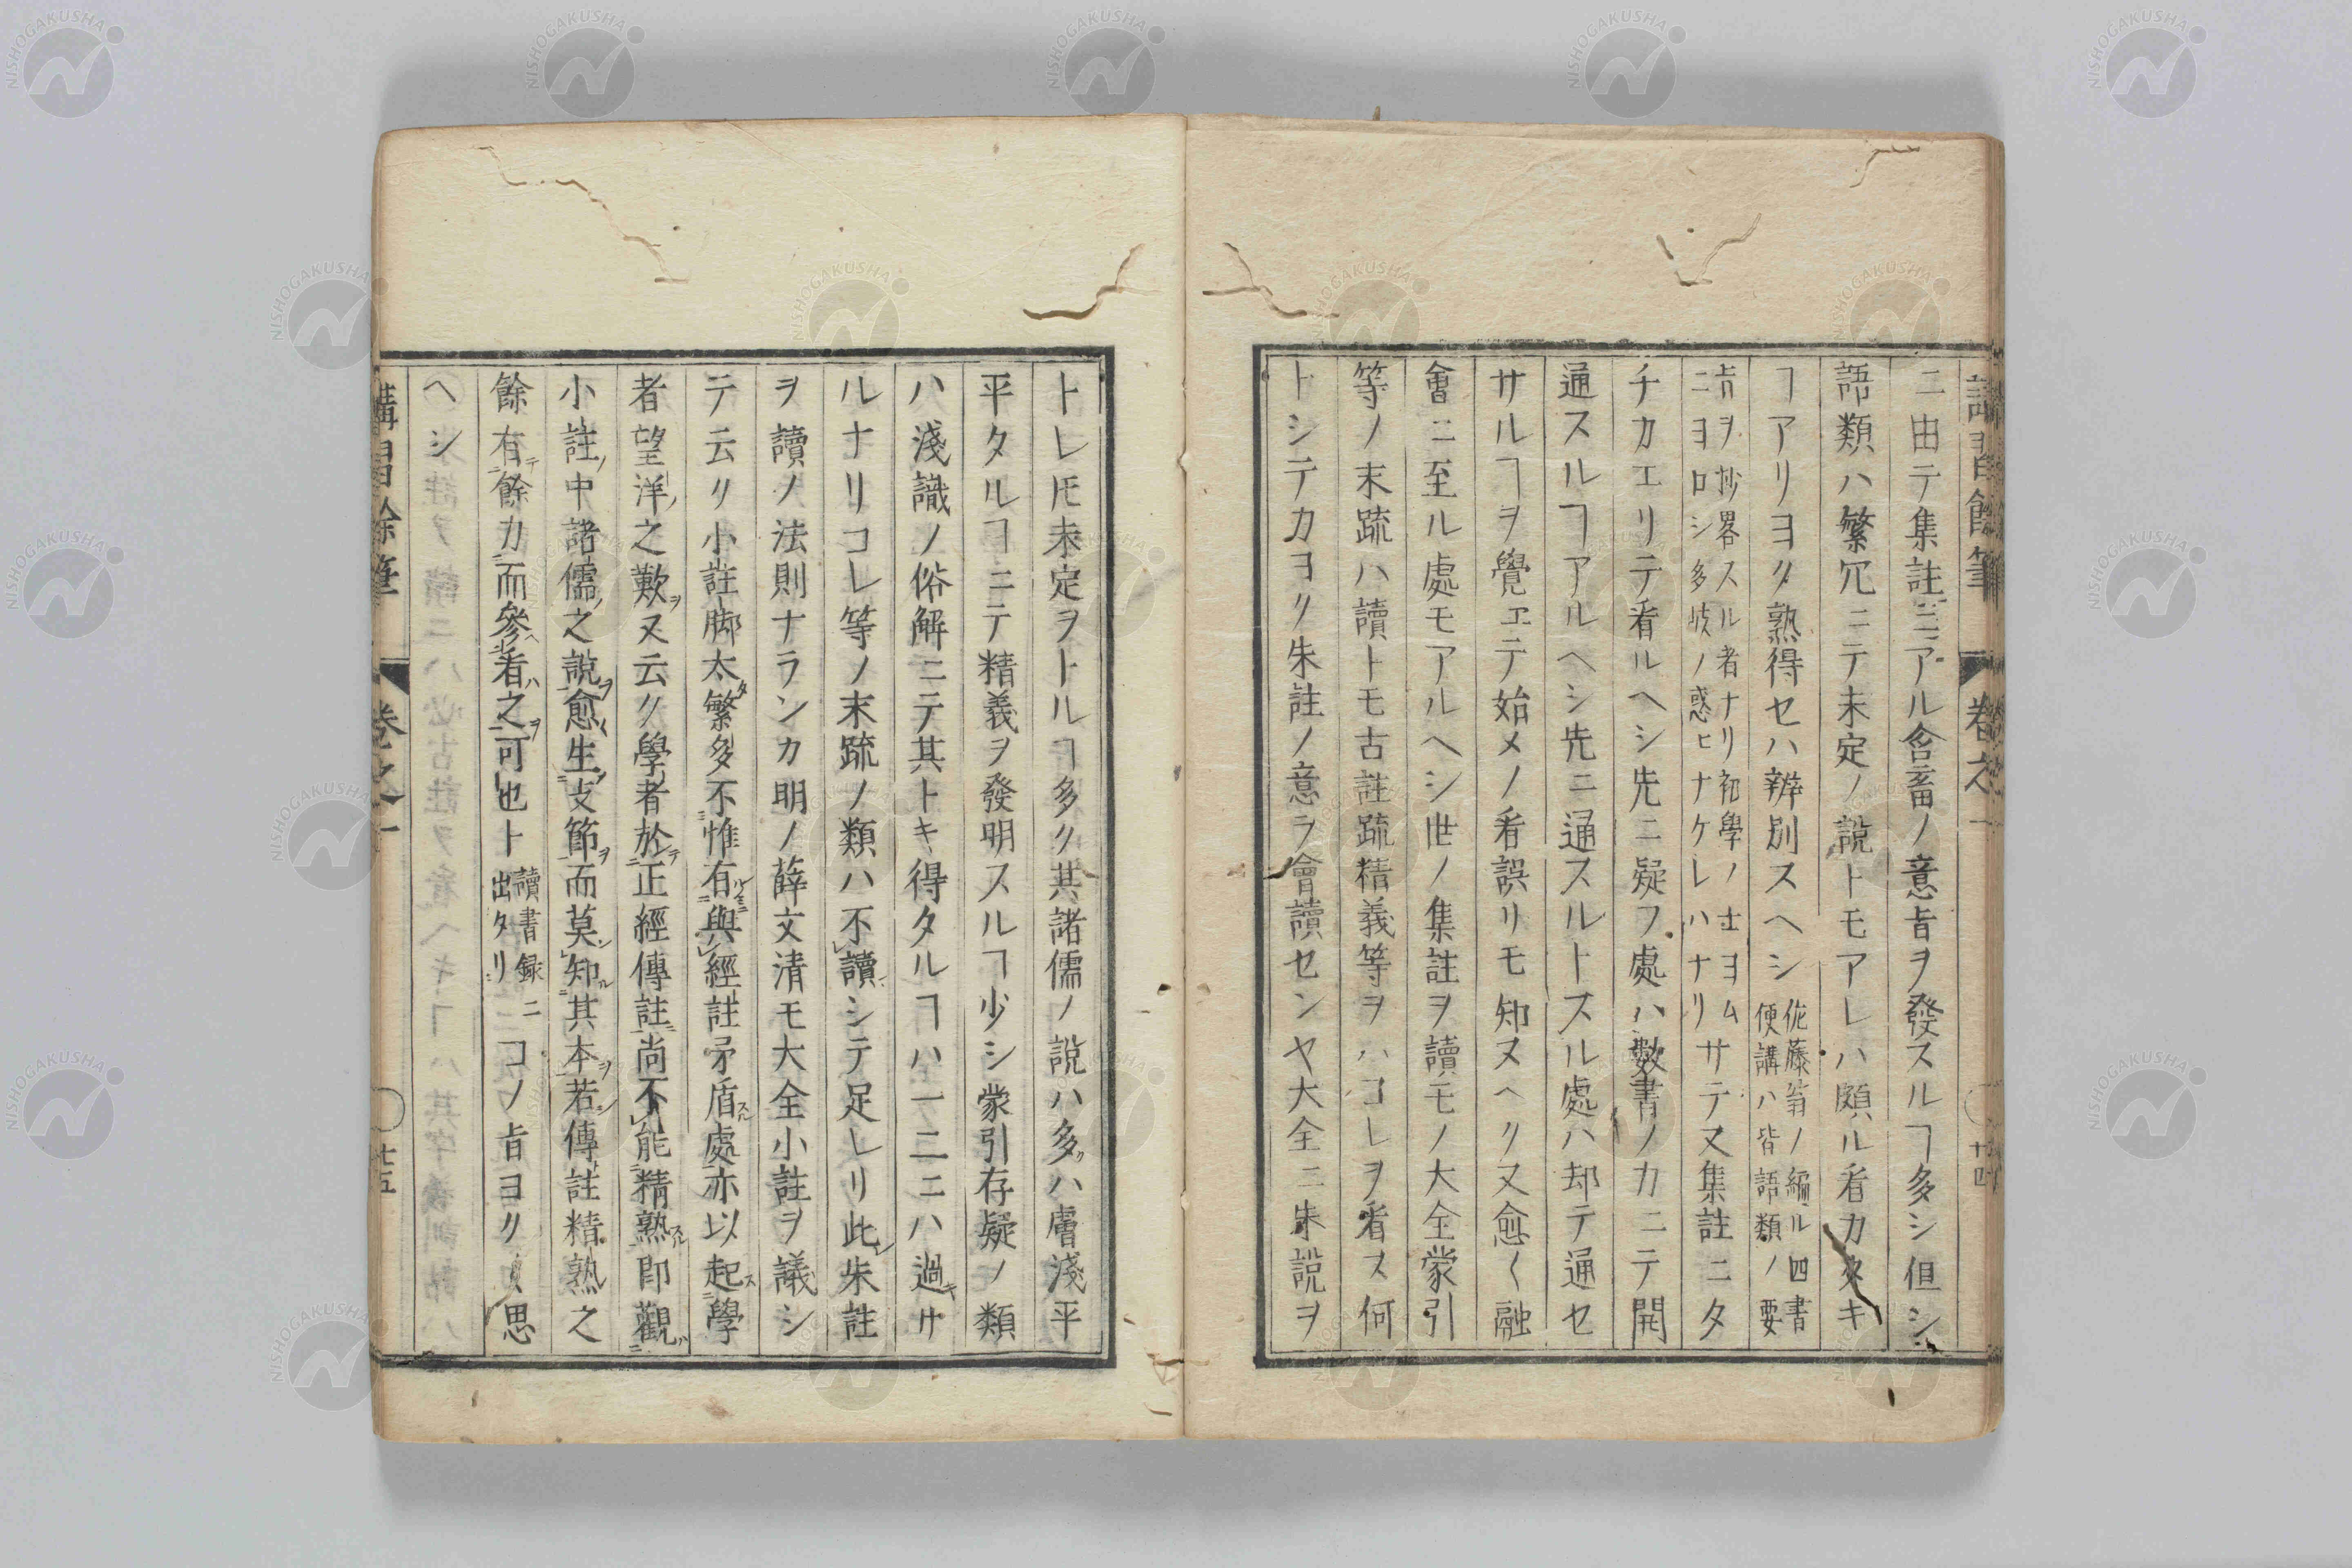 講習餘筆 卷之一 十四
ニ由テ集註ニアル含畜ノ意旨ヲ發スルヿ多シ但シ
語類ハ繁冗ニテ未定ノ說トモアレハ頗ル看カタキ
ヿアリヨク熟得セハ辨別スヘシ
佐藤翁ノ編ル四書
便講ハ皆語類ノ要
旨ヲ抄畧スル者ナリ初學ノ士ヨム
ニヨロシ多岐ノ惑ヒナケレハナリ
サテ又集註ニタ
チカエリテ看ルヘシ先ニ疑フ處ハ數書ノカニテ開
通スルヿアルヘシ先ニ通スルトスル處ハ却テ通セ
サルヿヲ覺エテ始メノ看誤リモ知ヌヘク又愈〱融
會ニ至ル處モアルヘシ世ノ集註ヲ讀モノ大全蒙引
等ノ末疏ハ讀トモ古註疏精義等ヲハコレヲ看ス何
トシテカヨク朱註ノ意ヲ會讀センヤ大全ニ朱說ヲ
トレ𪜈未定ヲトルヿ多ク其諸儒ノ說ハ多クハ膚淺平
平タルヿニテ精義ヲ發明スルヿ少シ蒙引存疑ノ類
ハ淺識ノ俗解ニテ其トキ得タルヿハ一二ニハ過キサ
ルナリコレ等ノ末疏ノ類ハ不讀シテ足レリ此レ朱註
ヲ讀ノ法則ナランカ明ノ薛文清モ大全小註ヲ議シ
テ云リ小註脚太タ繁多不惟有ルノミニ與經註矛盾スル處亦以起ス學
者望洋ノ之歎ヲ又云ク學者於テ正經傳註ニ尚不能精熟スル卽觀ハ
小註ノ中諸儒ノ之說ヲ愈〱生シ支節ヲ而莫シ知ル其本ヲ若シ傳註精熟之
餘有テ餘力而參ヘ看ハ之ヲ可也ト
讀書録ニ
出タリ
コノ旨ヨク〱思
ヘシ
講習餘筆 卷之一 十五